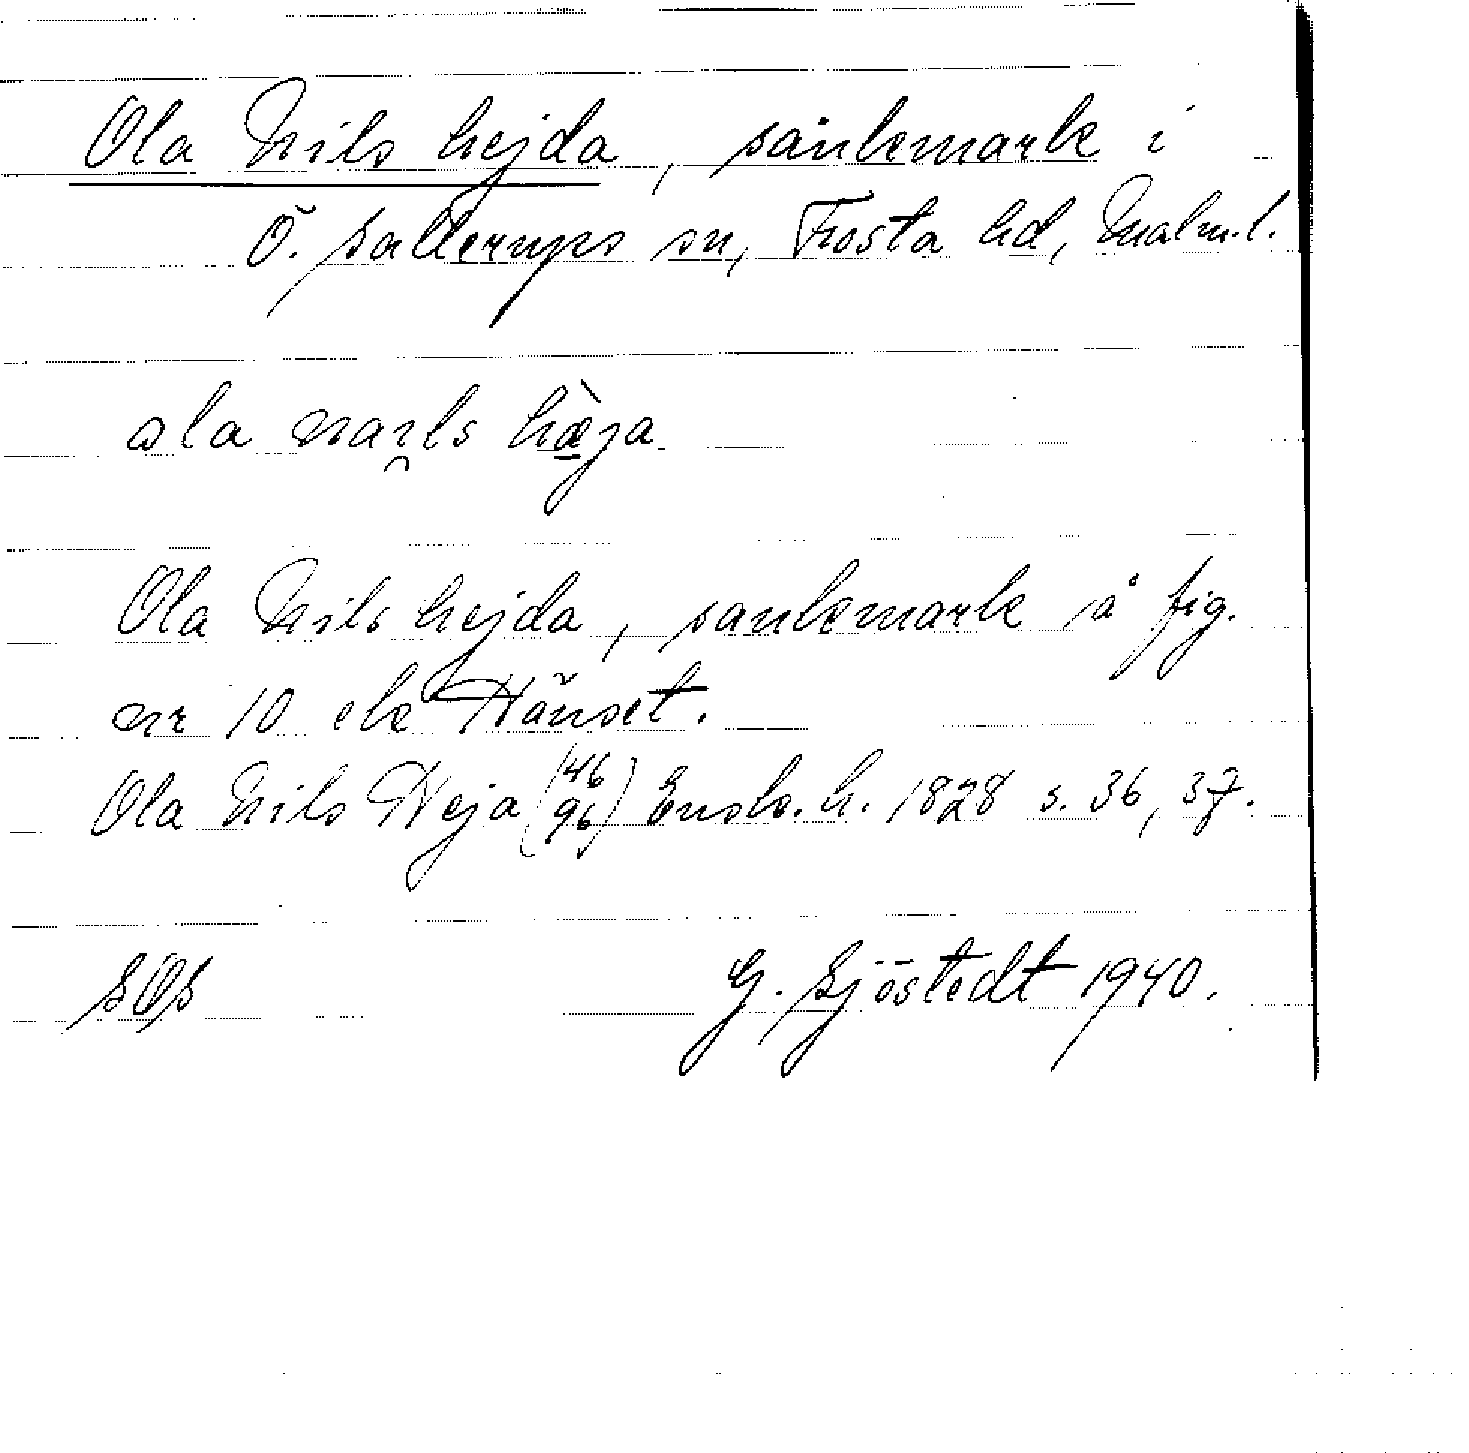 Ola Nils hejda, sankmark i
Ö. Sallerups sn, Frosta hd, Malm.l.
ola naɪls hæja
Ola Nils hejda, sankmark å fig.
nr 10 ek Hänset.
Ola Nils Heja (46 96) Ensk. h. 1828 s. 36, 37.
SOS G. Sjöstedt 1940.